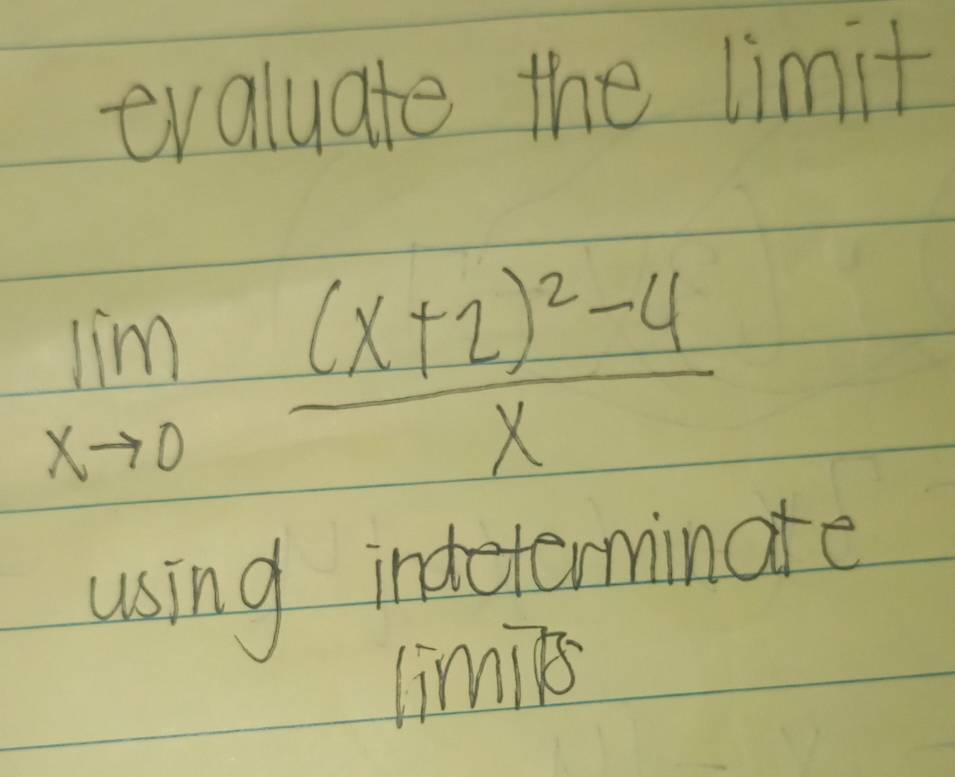 evaluate the limit
lim (x+2)²-4
x→0 x
using indeterminate
limits